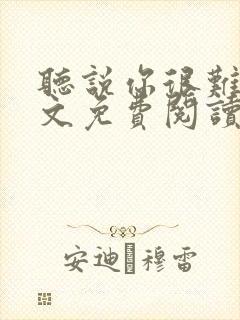 聽説你很難
文免費閱讀
安迪·穆雷